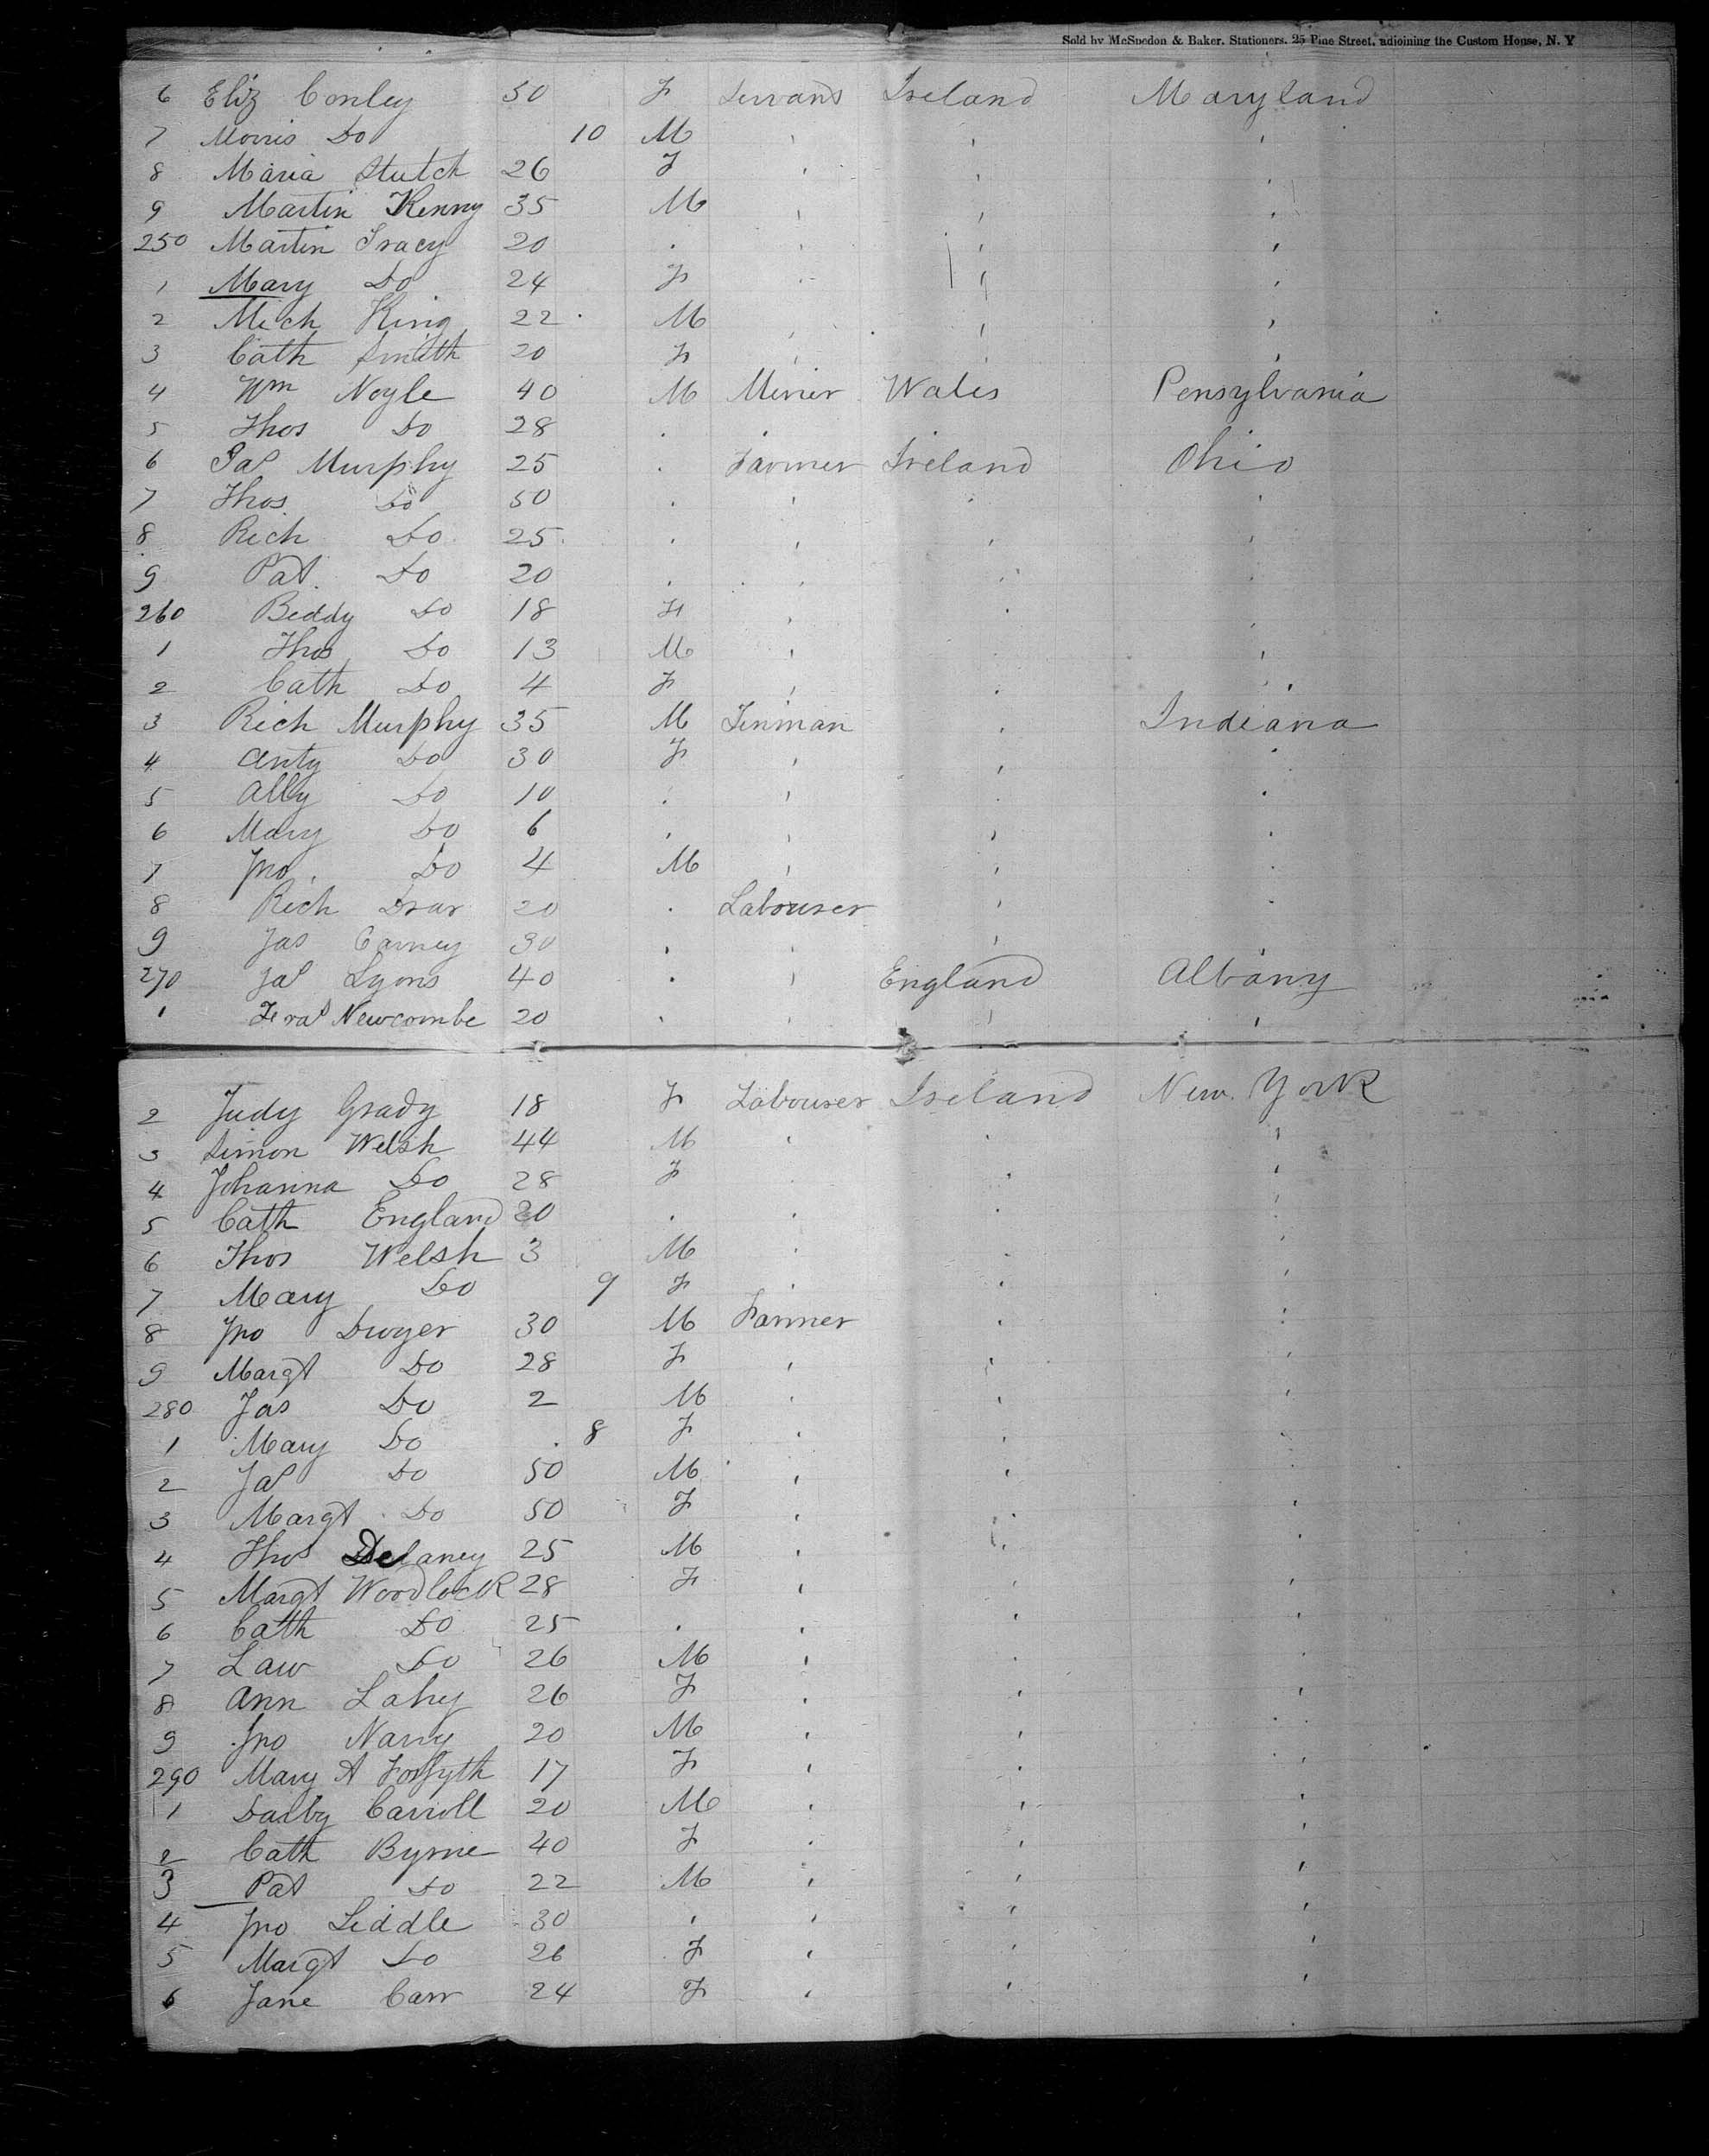 Sold by McSpedon & Baker, Stationers, 25 Pine Street, adjoining the Custom House, N. Y
6 Eliz Conley 50 F Servant Ireland Maryland
7 Morris Do 10 M
8 Maria Stutch 26 F
9 Martin Kenny 35 M
250 Martin Tracy 20
1 Mary Do 24 F
2 Mich King 22 M
3 Cath Smith 20 F
4 Wm Noyle 40 M Miner Wales Pensylvania
5 Thos Do 28
6 Jas Murphy 25 Farmer Ireland Ohio
7 Thos Do 50
8 Rich Do 25
9 Pat Do 20
260 Biddy Do 18 F
1 Thos Do 13 M
2 Cath Do 4 F
3 Rich Murphy 35 M Tinman Indiana
4 Anty Do 30 F
5 Ally Do 10
6 Mary Do 6
7 Jno Do 4 M
8 Rich 20 Labourer
9 Jas Carney 30
270 Jas Lyons 40 England Albany
1 Newcombe 20
2 Judy Grady 18 F Labourer Ireland New York
3 Simon Welsh 44 M
4 Johanna Do 28 F
5 Cath England 20
6 Thos Welsh 3 M
7 Mary Do 9 F
8 Jno Dwyer 30 M Farmer
9 Margt Do 28 F
280 Jas Do 2 M
1 Mary Do 8 F
2 Jas Do 50 M
3 Margt Do 50 F
4 Thos Delaney 25 M
5 Margt Woodlock 28 F
6 Cath Do 25
7 Law Do 26 M
8 Ann Lahy 26 F
9 Jno 20 M
290 Mary A Forsyth 17 F
1 Darby Carroll 20 M
2 Cath Byrne 40 F
3 Pat Do 22 M
4 Jno Liddle 30
5 Margt Do 26 F
6 Jane Carr 24 F